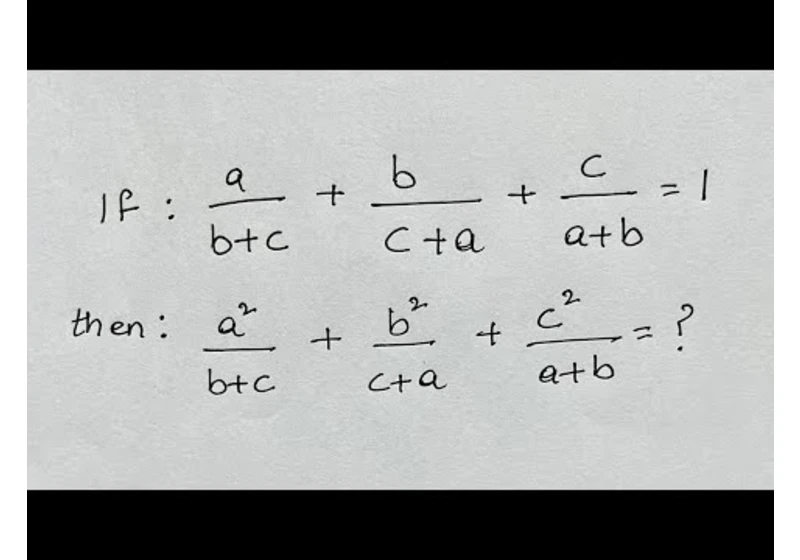 If : a/(b+c) + b/(c+a) + c/(a+b) = 1
then : a²/(b+c) + b²/(c+a) + c²/(a+b) = ?